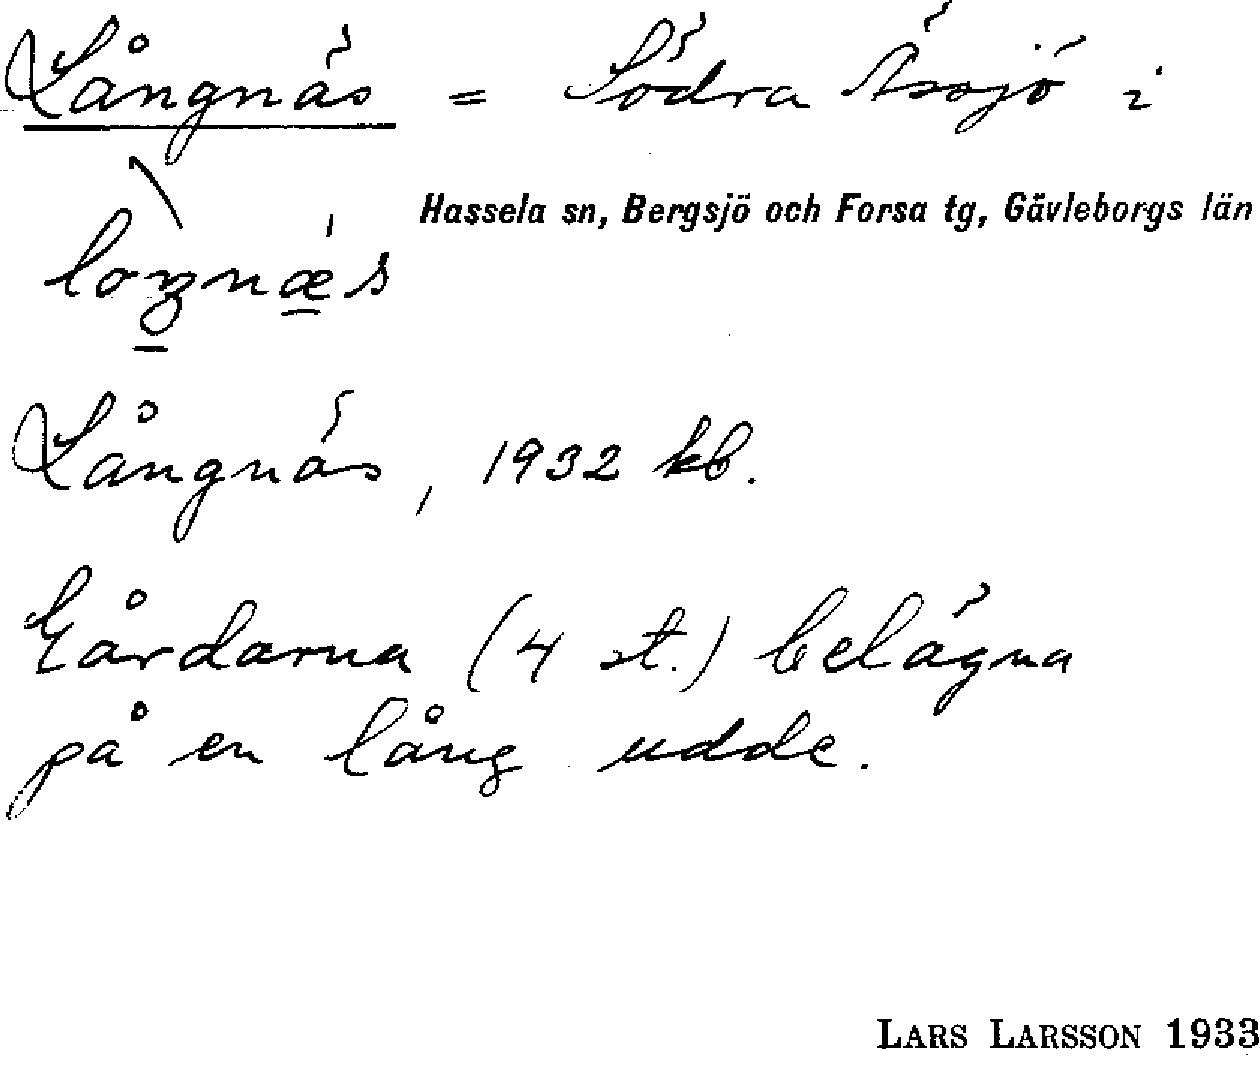 Långnäs = Södra Ässjö i
Hassela sn, Bergsjö och Forsa tg, Gävleborgs län
Långnäs, 1932 kb.
Gårdarna (4 st.) belägna
på en lång udde.
LARS LARSSON 1933